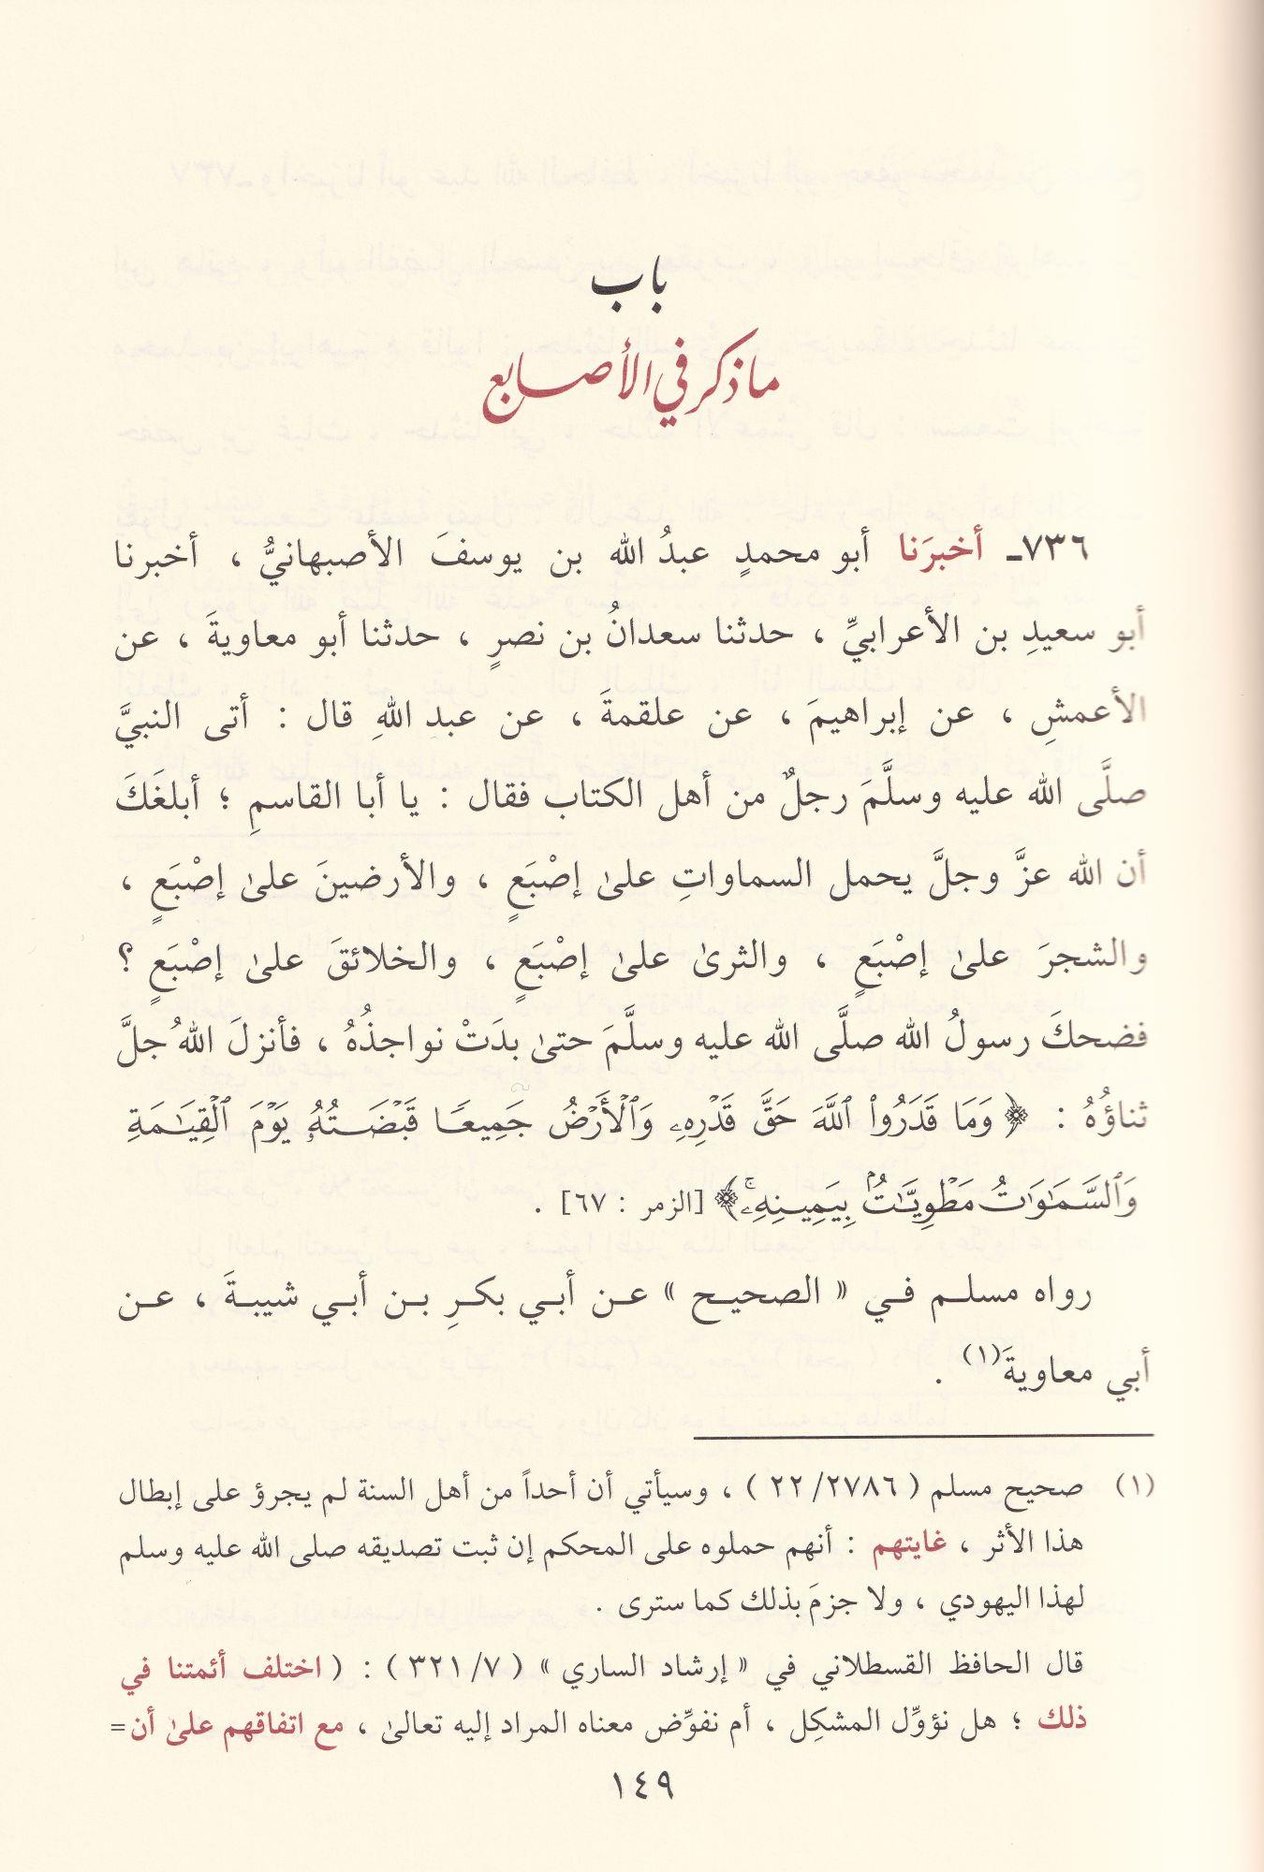 باب
ما ذكر في الأصابع
٧٣٦ـ أخبرَنا أبو محمدٍ عبدُ الله بن يوسفَ الأصبهانيُّ ، أخبرنا
أبو سعيدِ بن الأعرابيِّ ، حدثنا سعدانُ بن نصرٍ ، حدثنا أبو معاويةَ ، عن
الأعمشِ ، عن إبراهيمَ ، عن علقمةَ ، عن عبد اللهِ قال : أتى النبيَّ
صلَّى الله عليه وسلَّمَ رجلٌ من أهل الكتاب فقال : يا أبا القاسمِ ؛ أبلغَكَ
أن الله عزَّ وجلَّ يحمل السماواتِ علىٰ إصْبَعٍ ، والأرضينَ علىٰ إصْبَعٍ ،
والشجرَ علىٰ إصْبَعٍ ، والثرىٰ علىٰ إصْبَعٍ ، والخلائقَ علىٰ إصْبَعٍ ؟
فضحكَ رسولُ الله صلَّى الله عليه وسلَّمَ حتىٰ بدَتْ نواجذُهُ ، فأنزلَ اللهُ جلَّ
ثناؤُهُ : ﴿ وَمَا قَدَرُوا۟ ٱللَّهَ حَقَّ قَدْرِهِۦ وَٱلْأَرْضُ جَمِيعًا قَبْضَتُهُۥ يَوْمَ ٱلْقِيَٰمَةِ
وَٱلسَّمَٰوَٰتُ مَطْوِيَّٰتٌۢ بِيَمِينِهِۦۚ ﴾ [الزمر : ٦٧] .
رواه مسلم في « الصحيح » عن أبي بكرِ بن أبي شيبةَ ، عن
أبي معاويةَ(١) .
(١) صحيح مسلم ( ٢٢/٢٧٨٦ ) ، وسيأتي أن أحداً من أهل السنة لم يجرؤ على إبطال
هذا الأثر ، غايتهم : أنهم حملوه على المحكم إن ثبت تصديقه صلى الله عليه وسلم
لهذا اليهودي ، ولا جزمَ بذلك كما سترى .
قال الحافظ القسطلاني في « إرشاد الساري » ( ٣٢١/٧ ) : ( اختلف أئمتنا في
ذلك ؛ هل نؤوِّل المشكِل ، أم نفوِّض معناه المراد إليه تعالىٰ ، مع اتفاقهم علىٰ أن=
١٤٩